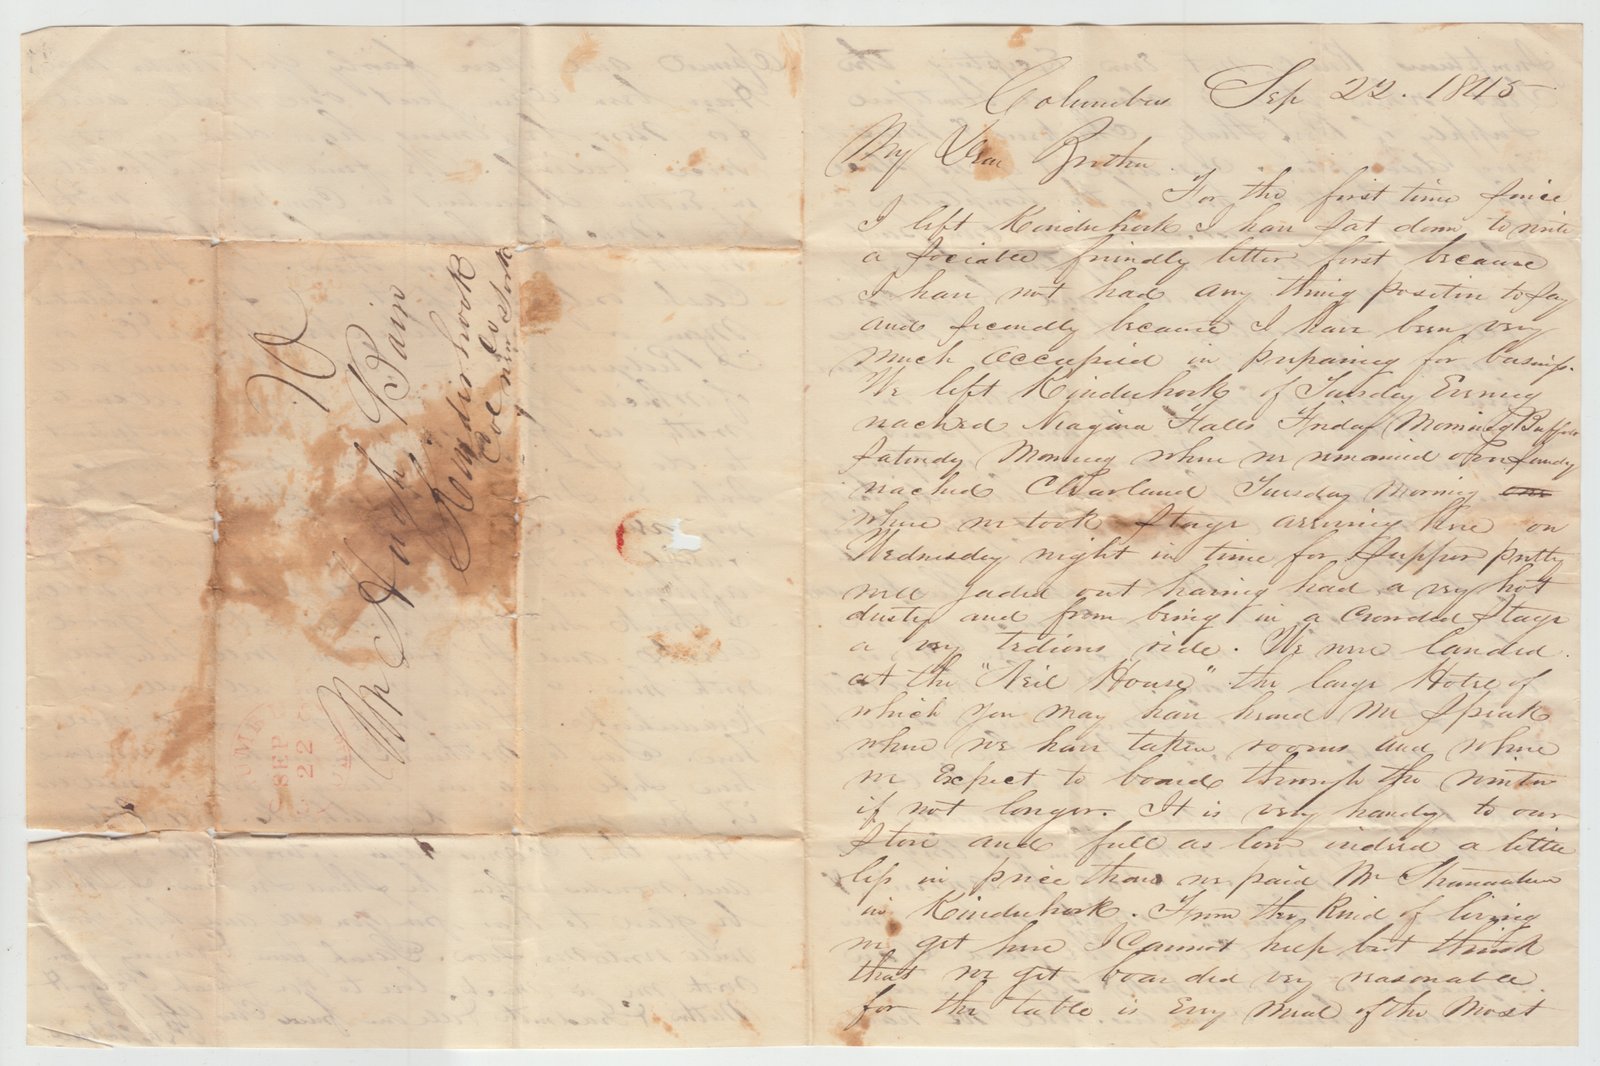 10
Mr Hugh Bain
Kinderhook
Col Co
New York
SEP
22
Columbus Sep 22. 1845
My Dear Brother.
For the first time since
I left Kinderhook I have sat down to write
a sociable friendly letter first because
I have not had any thing positive to say
and secondly because I have been very
much occupied in preparing for business.
We left Kinderhook of Tuesday Evening
reached Niagara Falls Friday Morning Buffalo
Saturday Morning where we remained over Sunday
reached Cleavland Tuesday Morning
where we took Stage arriving here on
Wednesday night in time for Supper pretty
well jaded out having had a very hot
dusty and from being in a crowded Stage
a very tedious ride. We were landed
at the "Neil House" the large Hotel of
which you may have heard Me Speak
where we have taken rooms and where
we Expect to board through the winter
if not longer. It is very handy to our
Store and full as low indeed a little
less in price than we paid Mr
in Kinderhook. From the kind of living
we get here I Cannot help but think
that we get boarded very reasonable.
for the table is Evry Meal of the Most